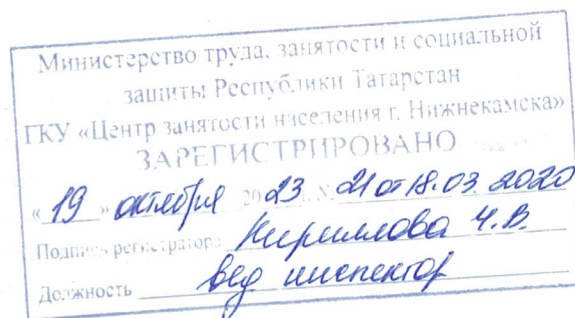 Министерство труда, занятости и социальной
защиты Республики Татарстан
ГКУ «Центр занятости населения г. Нижнекамска»
ЗАРЕГИСТРИРОВАНО
« 19 » октября 20 23 г. № 21 от 18.03.2020
Подпись регистратора Кириллова Ч.В.
Должность вед инспектор